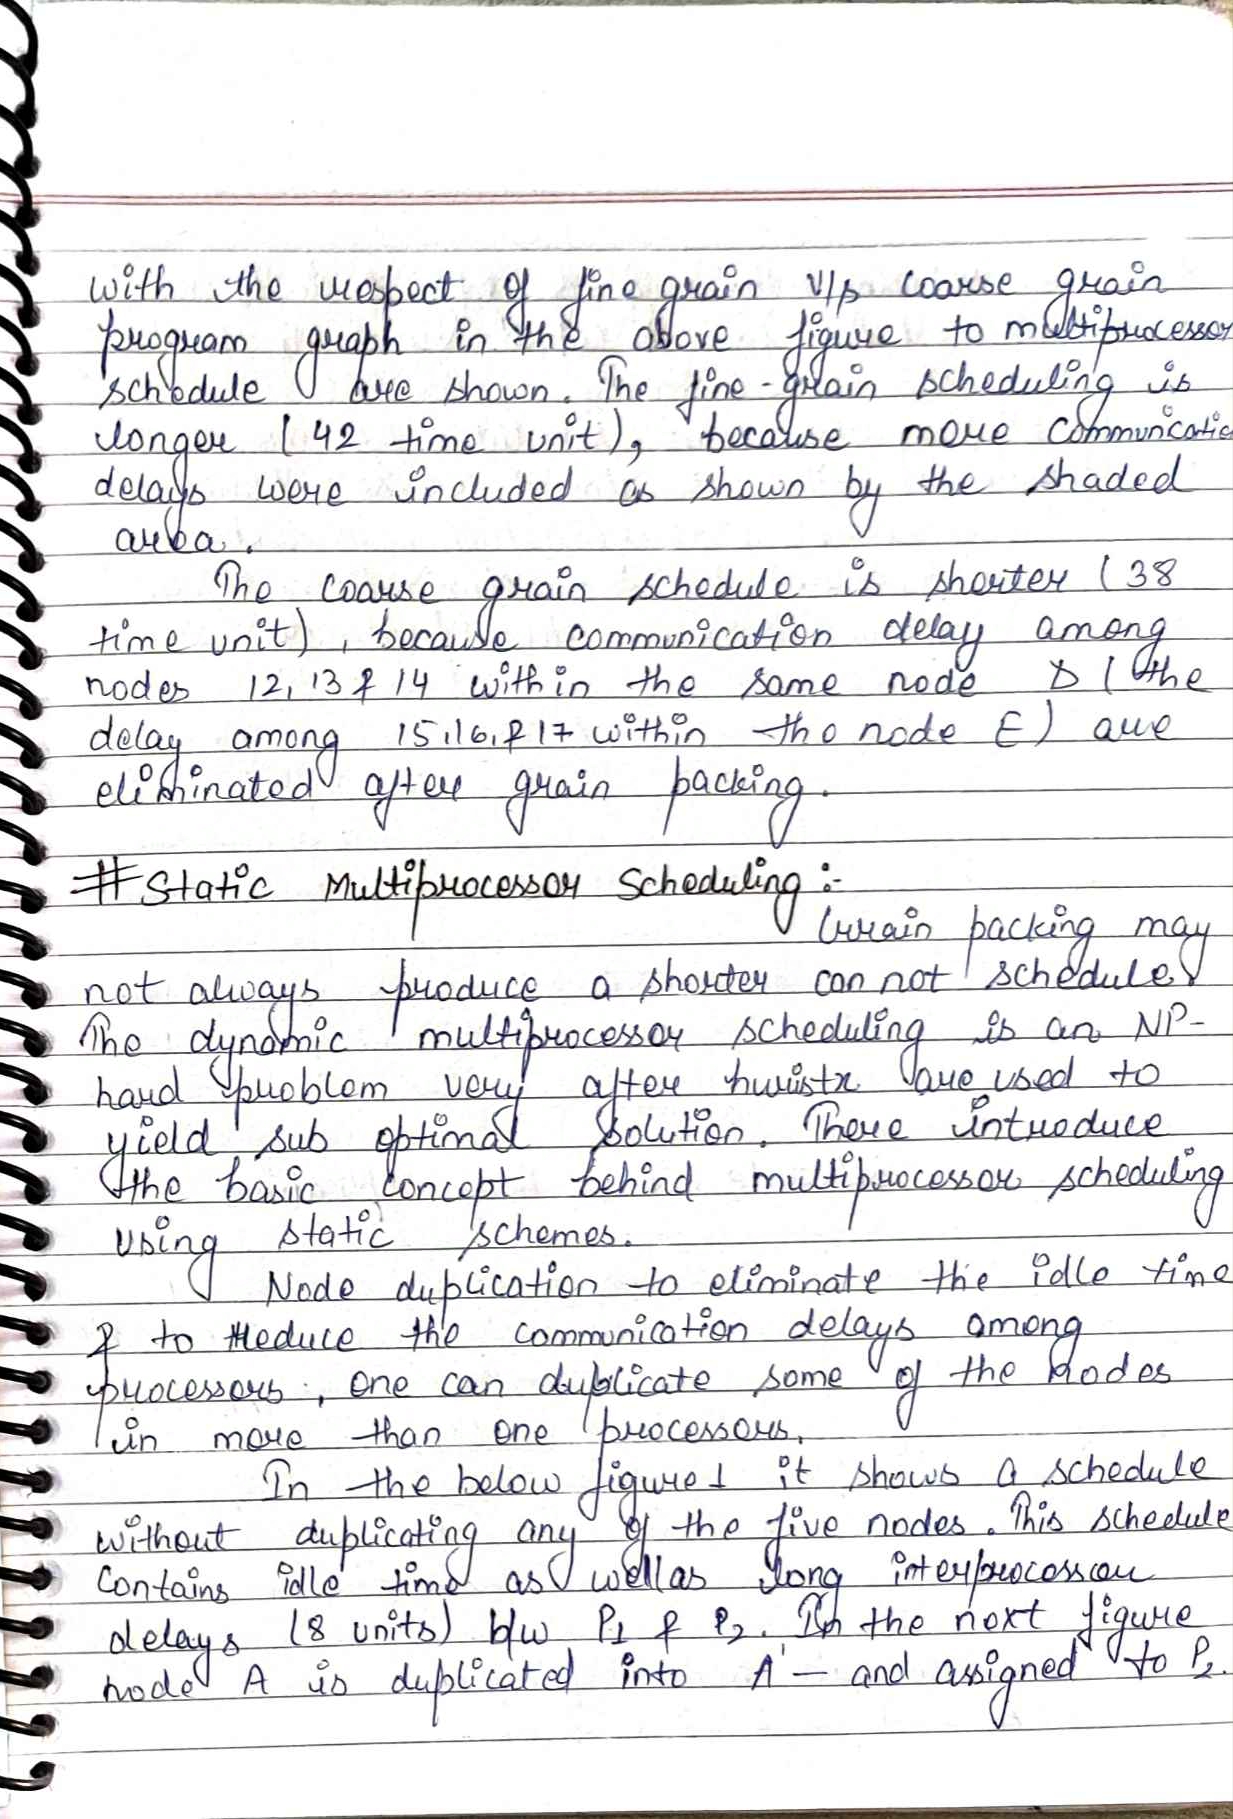 with the respect of fine grain v/s coarse grain
program graph in the above figure to multiprocessor
schedule are shown. The fine-grain scheduling is
longer (42 time unit), because more communicatio
delays were included as shown by the shaded
area.
The coarse grain schedule is shorter (38
time unit), because communication delay among
nodes 12, 13 & 14 within the same node D (the
delay among 15,16,& 17 within the node E) are
eliminated after grain packing.
# Static Multiprocessor Scheduling :-
Grain packing may
not always produce a shorter can not schedule.
The dynamic multiprocessor scheduling is an NP-
hard problem very after are used to
yield sub optimal solution. There introduce
the basic concept behind multiprocessor scheduling
using static schemes.
Node duplication to eliminate the idle time
& to reduce the communication delays among
processors, one can duplicate some of the nodes
in more than one processors.
In the below figure 1 it shows a schedule
without duplicating any of the five nodes. This schedule
contains idle time as well as long interprocessor
delays (8 units) b/w P1 & P2. In the next figure
node A is duplicated into A' — and assigned to P2.